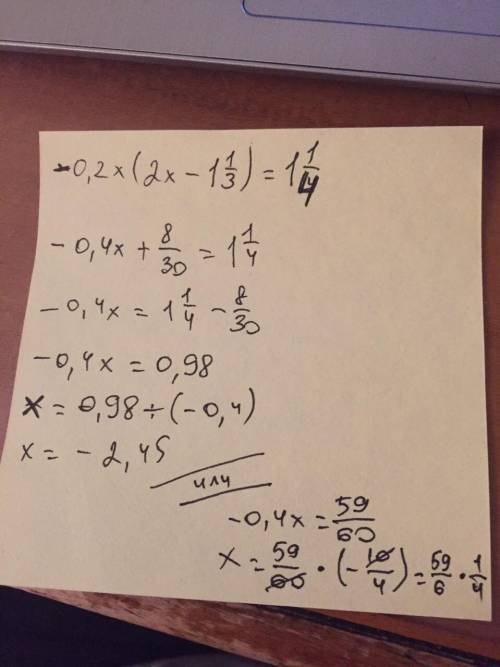 -0,2x(2x - 1 1/3) = 1 1/4
-0,4x + 8/30 = 1 1/4
-0,4x = 1 1/4 - 8/30
-0,4x = 0,98
x = 0,98 ÷ (-0,4)
x = -2,45
или
-0,4x = 59/60
x = 59/60 · (-10/4) = 59/6 · 1/4